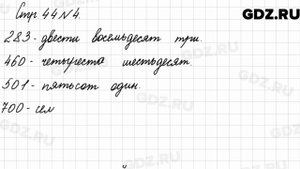 Стр 44 №4. GDZ.RU
283 - двести восемьдесят три.
460 - четыреста шестьдесят.
501 - пятьсот один.
700 - сем